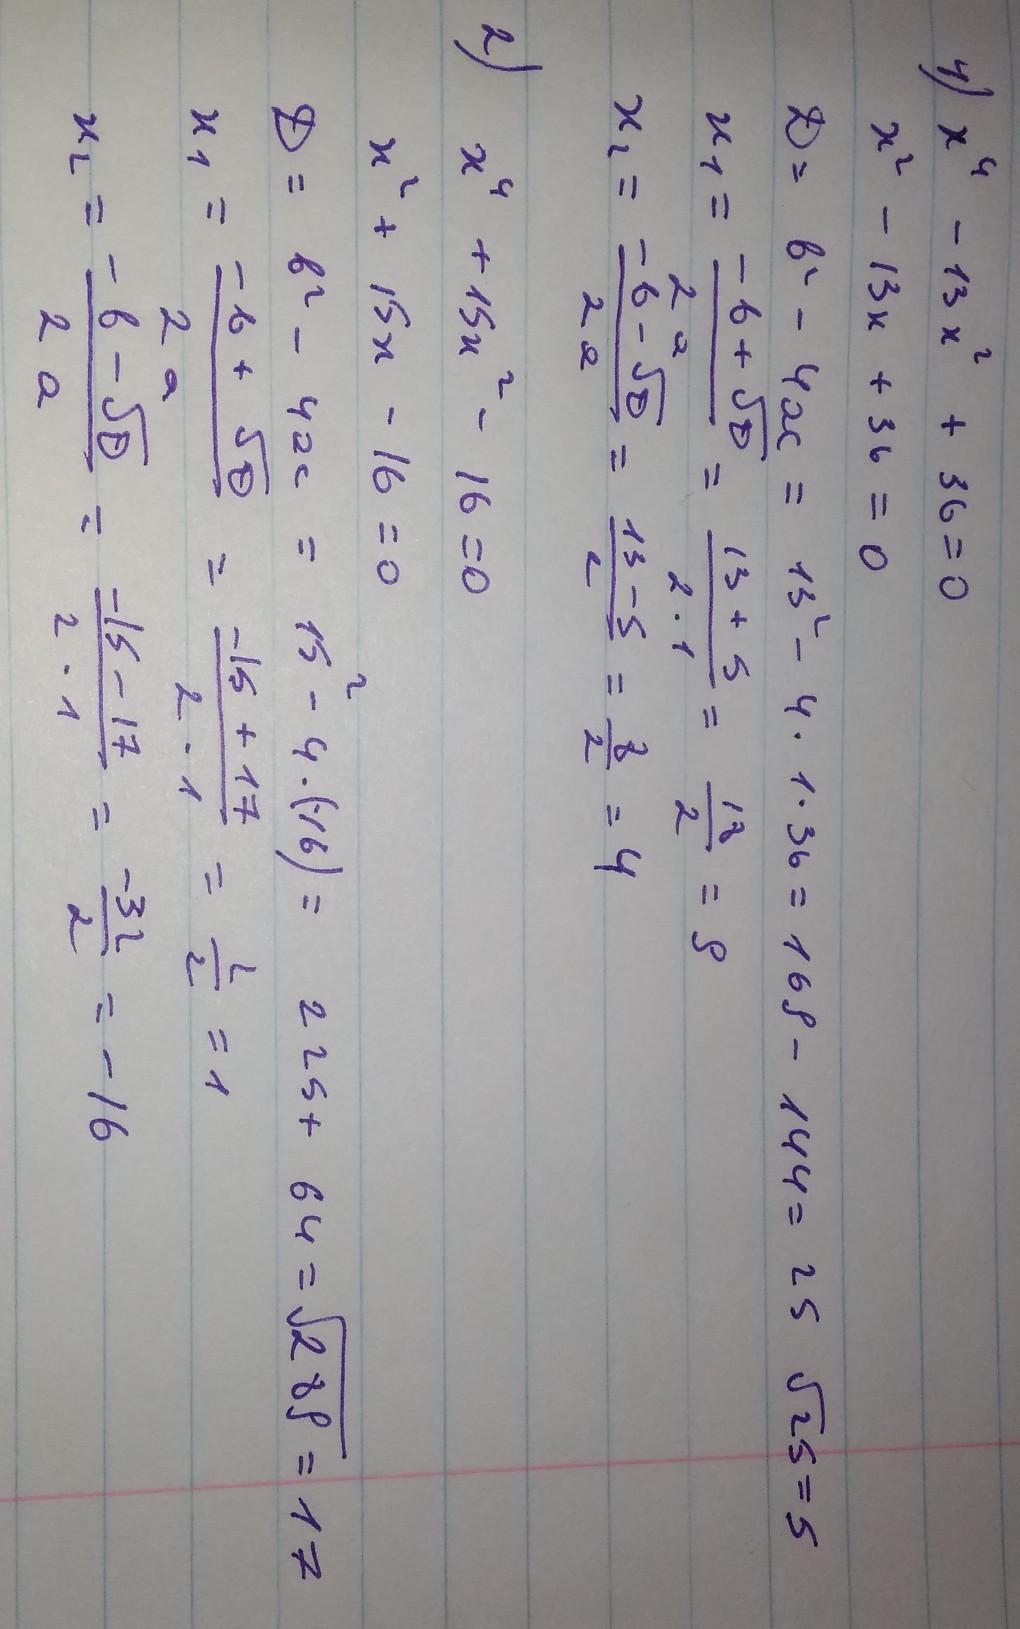 1) x⁴ - 13x² + 36 = 0
x² - 13x + 36 = 0
D = b² - 4ac = 13² - 4·1·36 = 169 - 144 = 25 √25 = 5
x₁ = (-b + √D)/(2a) = (13 + 5)/(2·1) = 18/2 = 9
x₂ = (-b - √D)/(2a) = (13 - 5)/2 = 8/2 = 4
2) x⁴ + 15x² - 16 = 0
x² + 15x - 16 = 0
D = b² - 4ac = 15² - 4·(-16) = 225 + 64 = √289 = 17
x₁ = (-b + √D)/(2a) = (-15 + 17)/(2·1) = 2/2 = 1
x₂ = (-b - √D)/(2a) = (-15 - 17)/(2·1) = -32/2 = -16